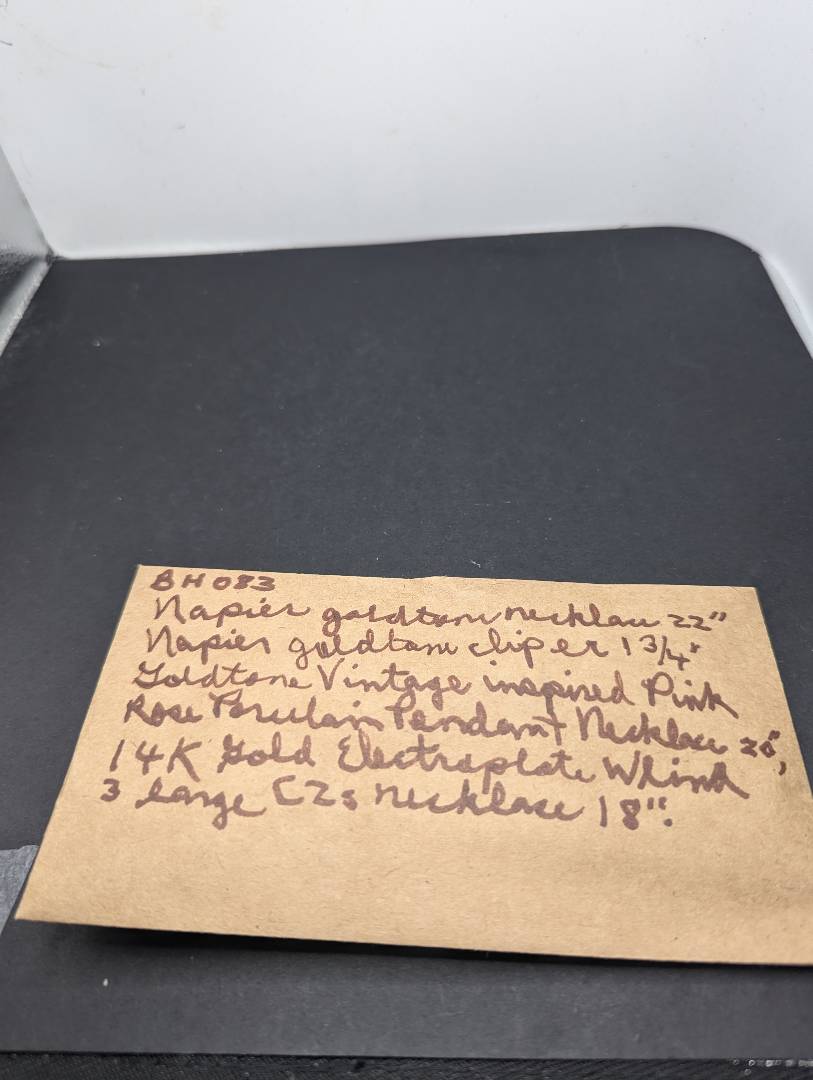 BH083
Napier goldtone necklace 22"
Napier goldtone clip er 1 3/4"
Goldtone Vintage inspired Pink
Rose Porcelain Pendant Necklace 20",
14K Gold Electroplate
3 large CZs necklace 18".